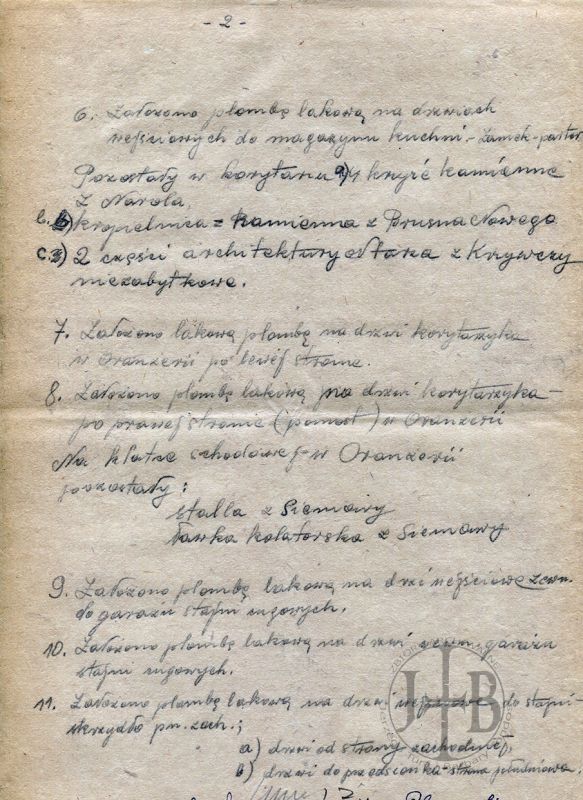 - 2 -
6. Założono plombę lakową na drzwiach
wejściowych do magazynu kuchni - Zamek - parter
Pozostały w korytarzu a) 4 krzyże kamienne
z Narola,
b. kropielnica = kamienna z Brusna Nowego
c. 3) 2 części architektury ołtarza z Krzywczy
niezabytkowe.
7. Założono lakową plombę na drzwi korytarzyka
w Oranżerii po lewej stronie.
8. Założono plombę lakową na drzwi korytarzyka -
po prawej stronie (pomost) w Oranżerii
Na klatce schodowej - w Oranżerii
pozostały:
stalla z Sieniawy
ławka kolatorska z Sieniawy
9. Założono plombę lakową na drzwi wejściowe zewn.
do garażu stajni cugowych.
10. Założono plombę lakową na drzwi wewn. garażu
stajni cugowych.
11. Założono plombę lakową na drzwi wejściowe do stajni -
skrzydło pn. zach.;
a) drzwi od strony zachodniej,
b) drzwi do przedsionka - strona południowa.
J B